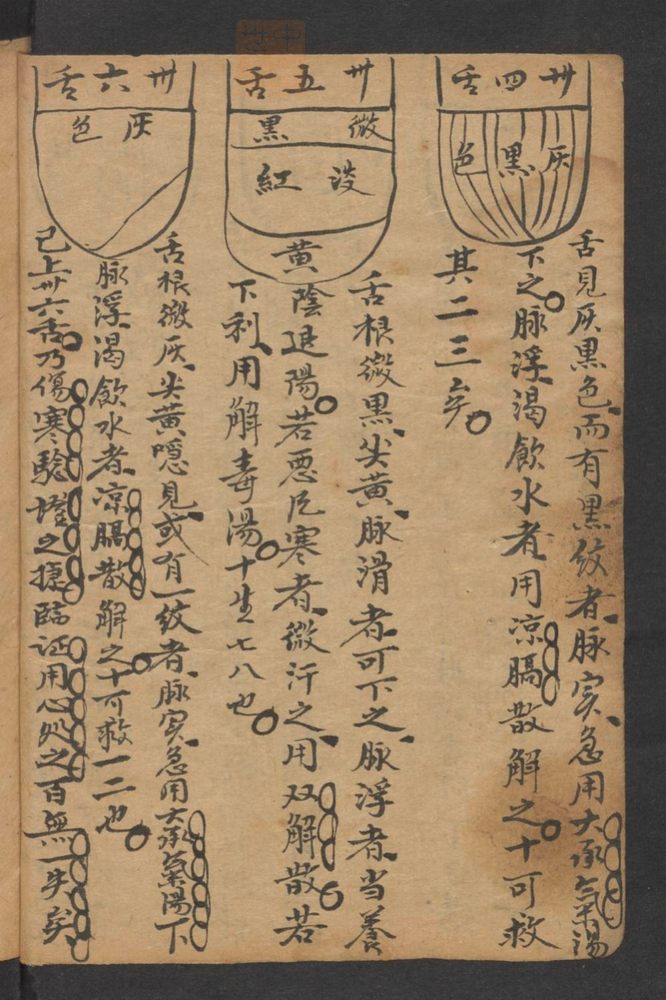 卅四舌
灰黑色
舌見灰黑色而有黑紋者脉实急用大承气湯
下之脉浮渴飲水者用凉膈散解之十可救
其二三矣
卅五舌
微黑
淡紅
黃
舌根微黑尖黃脉滑者可下之脉浮者当養
陰退陽若悪风寒者微汗之用双解散若
下利用解毒湯十生七八也
卅六舌
灰色
舌根微灰尖黃隠見或有一紋者脉实急用大承气湯下
脉浮渴飲水者凉膈散解之十可救一二也
已上卅六舌乃傷寒驗證之捷臨证用心処之百無一失矣